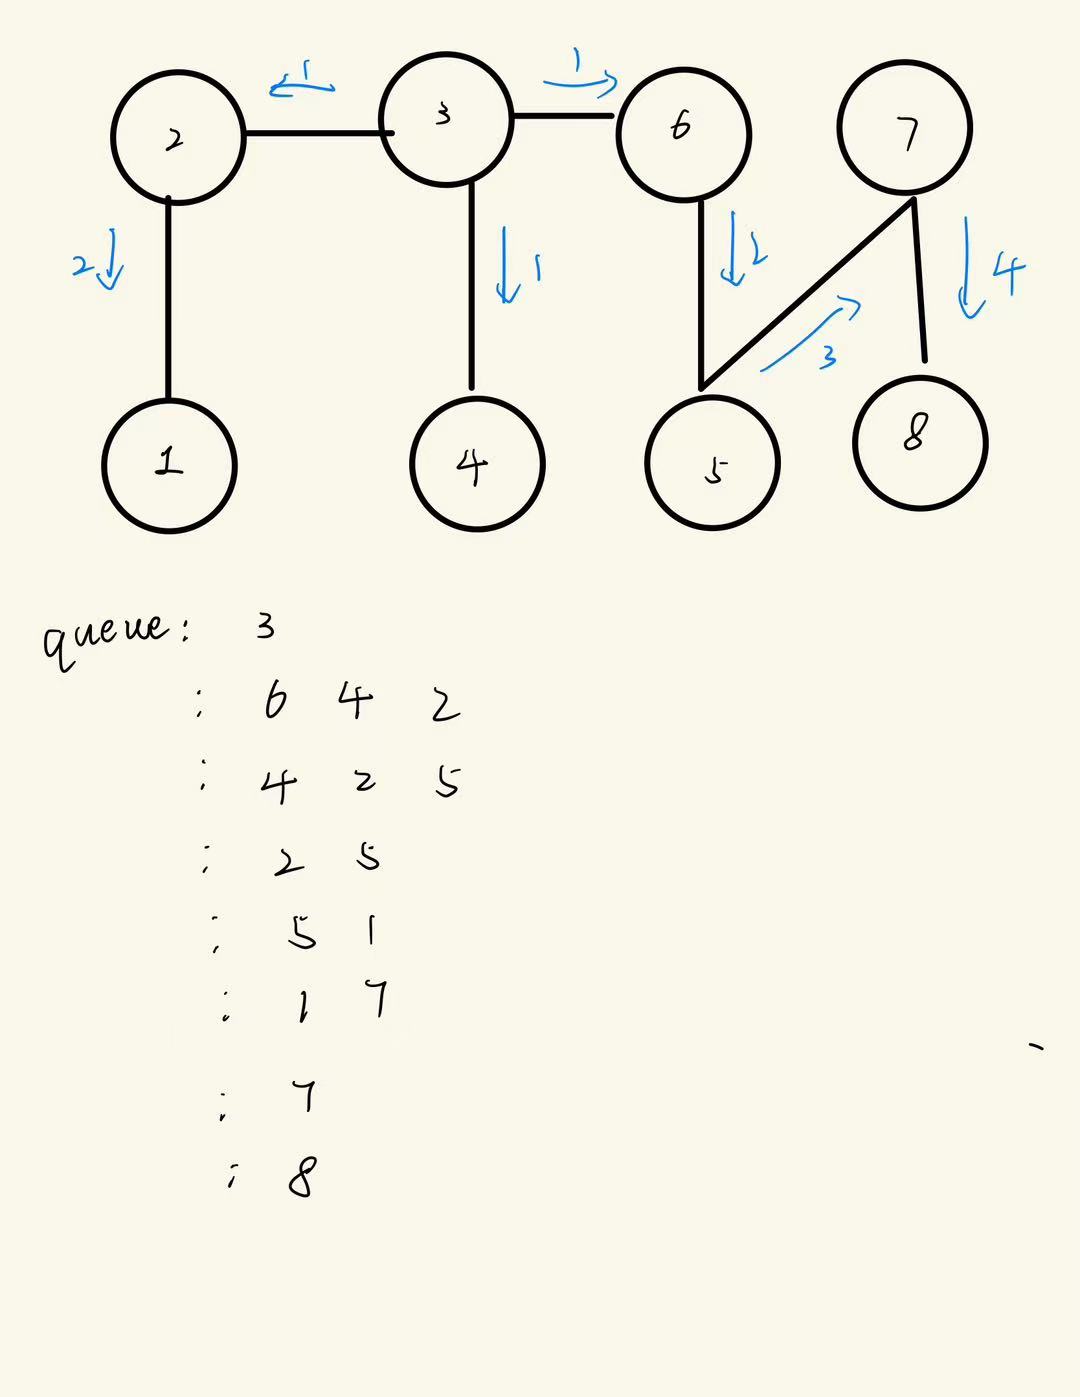 1 1
2 3 6 7
2 1 2 4
3
1 4 5 8
queue: 3
: 6 4 2
: 4 2 5
: 2 5
: 5 1
: 1 7
: 7
: 8